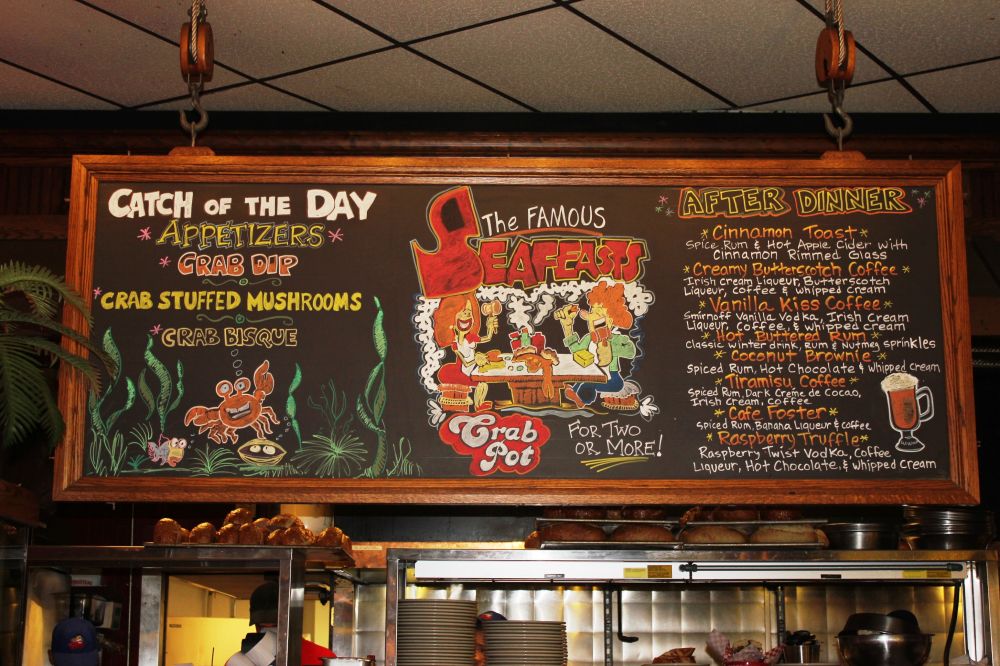 CATCH OF THE DAY
APPETIZERS
CRAB DIP
CRAB STUFFED MUSHROOMS
CRAB BISQUE
The FAMOUS
SEAFEASTS
Crab
Pot
FOR TWO
OR MORE!
AFTER DINNER
Cinnamon Toast
Spice Rum & Hot Apple Cider with
Cinnamon Rimmed Glass
Creamy Butterscotch Coffee
Irish cream Liqueur, Butterscotch
Liqueur, Coffee & whipped cream
Vanilla Kiss Coffee
Smirnoff Vanilla Vodka, Irish Cream
Liqueur, Coffee, & whipped cream
Hot Buttered Rum
Classic winter drink, Rum & Nutmeg sprinkles
Coconut Brownie
Spiced Rum, Hot Chocolate & whipped cream
Tiramisu Coffee
Spiced Rum, Dark Creme de Cocao,
Irish Cream, Coffee
Cafe Foster
Spiced Rum, Banana Liqueur & coffee
Raspberry Truffle
Raspberry Twist Vodka, Coffee
Liqueur, Hot Chocolate, & whipped Cream